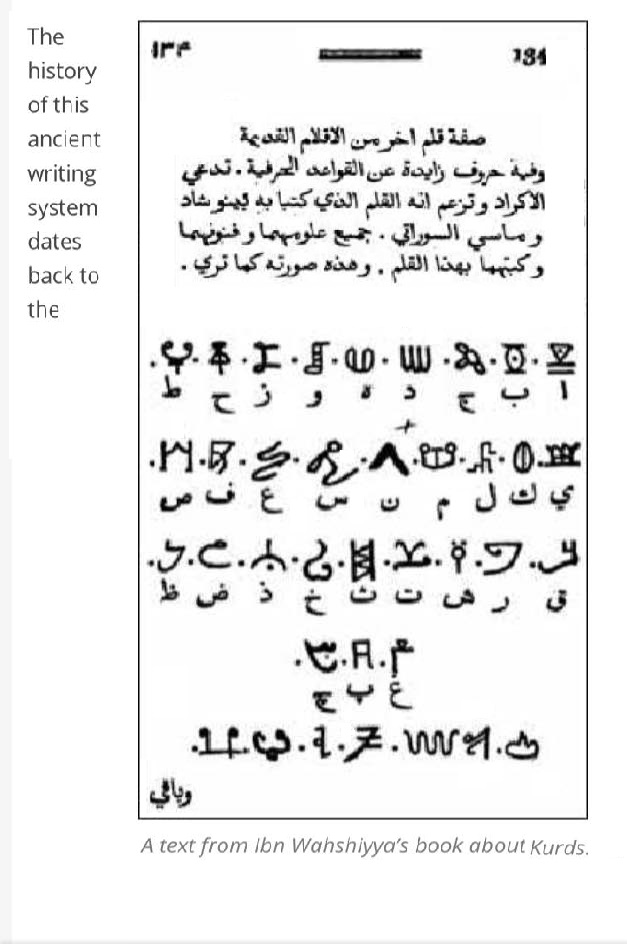 The
history
of this
ancient
writing
system
dates
back to
the
١٣۴
134
صفة قلم اخر من الاقلام القديمة
وفية حروف زايدة عن القواعد الحرفية . تدعي
الاكراد وتزعم انه القلم الذي كتبا به بينو شاد
وماسي السوراتي . جميع علومهما وفنونهما
وكتبهما بهذا القلم . وهذه صورته كما تري .
ا ب ج د ه و ز ح ط
ي ك ل م ن س ع ف ص
ق ر ش ت ث خ ذ ض ظ
غ پ چ
وباقي
A text from Ibn Wahshiyya’s book about Kurds.